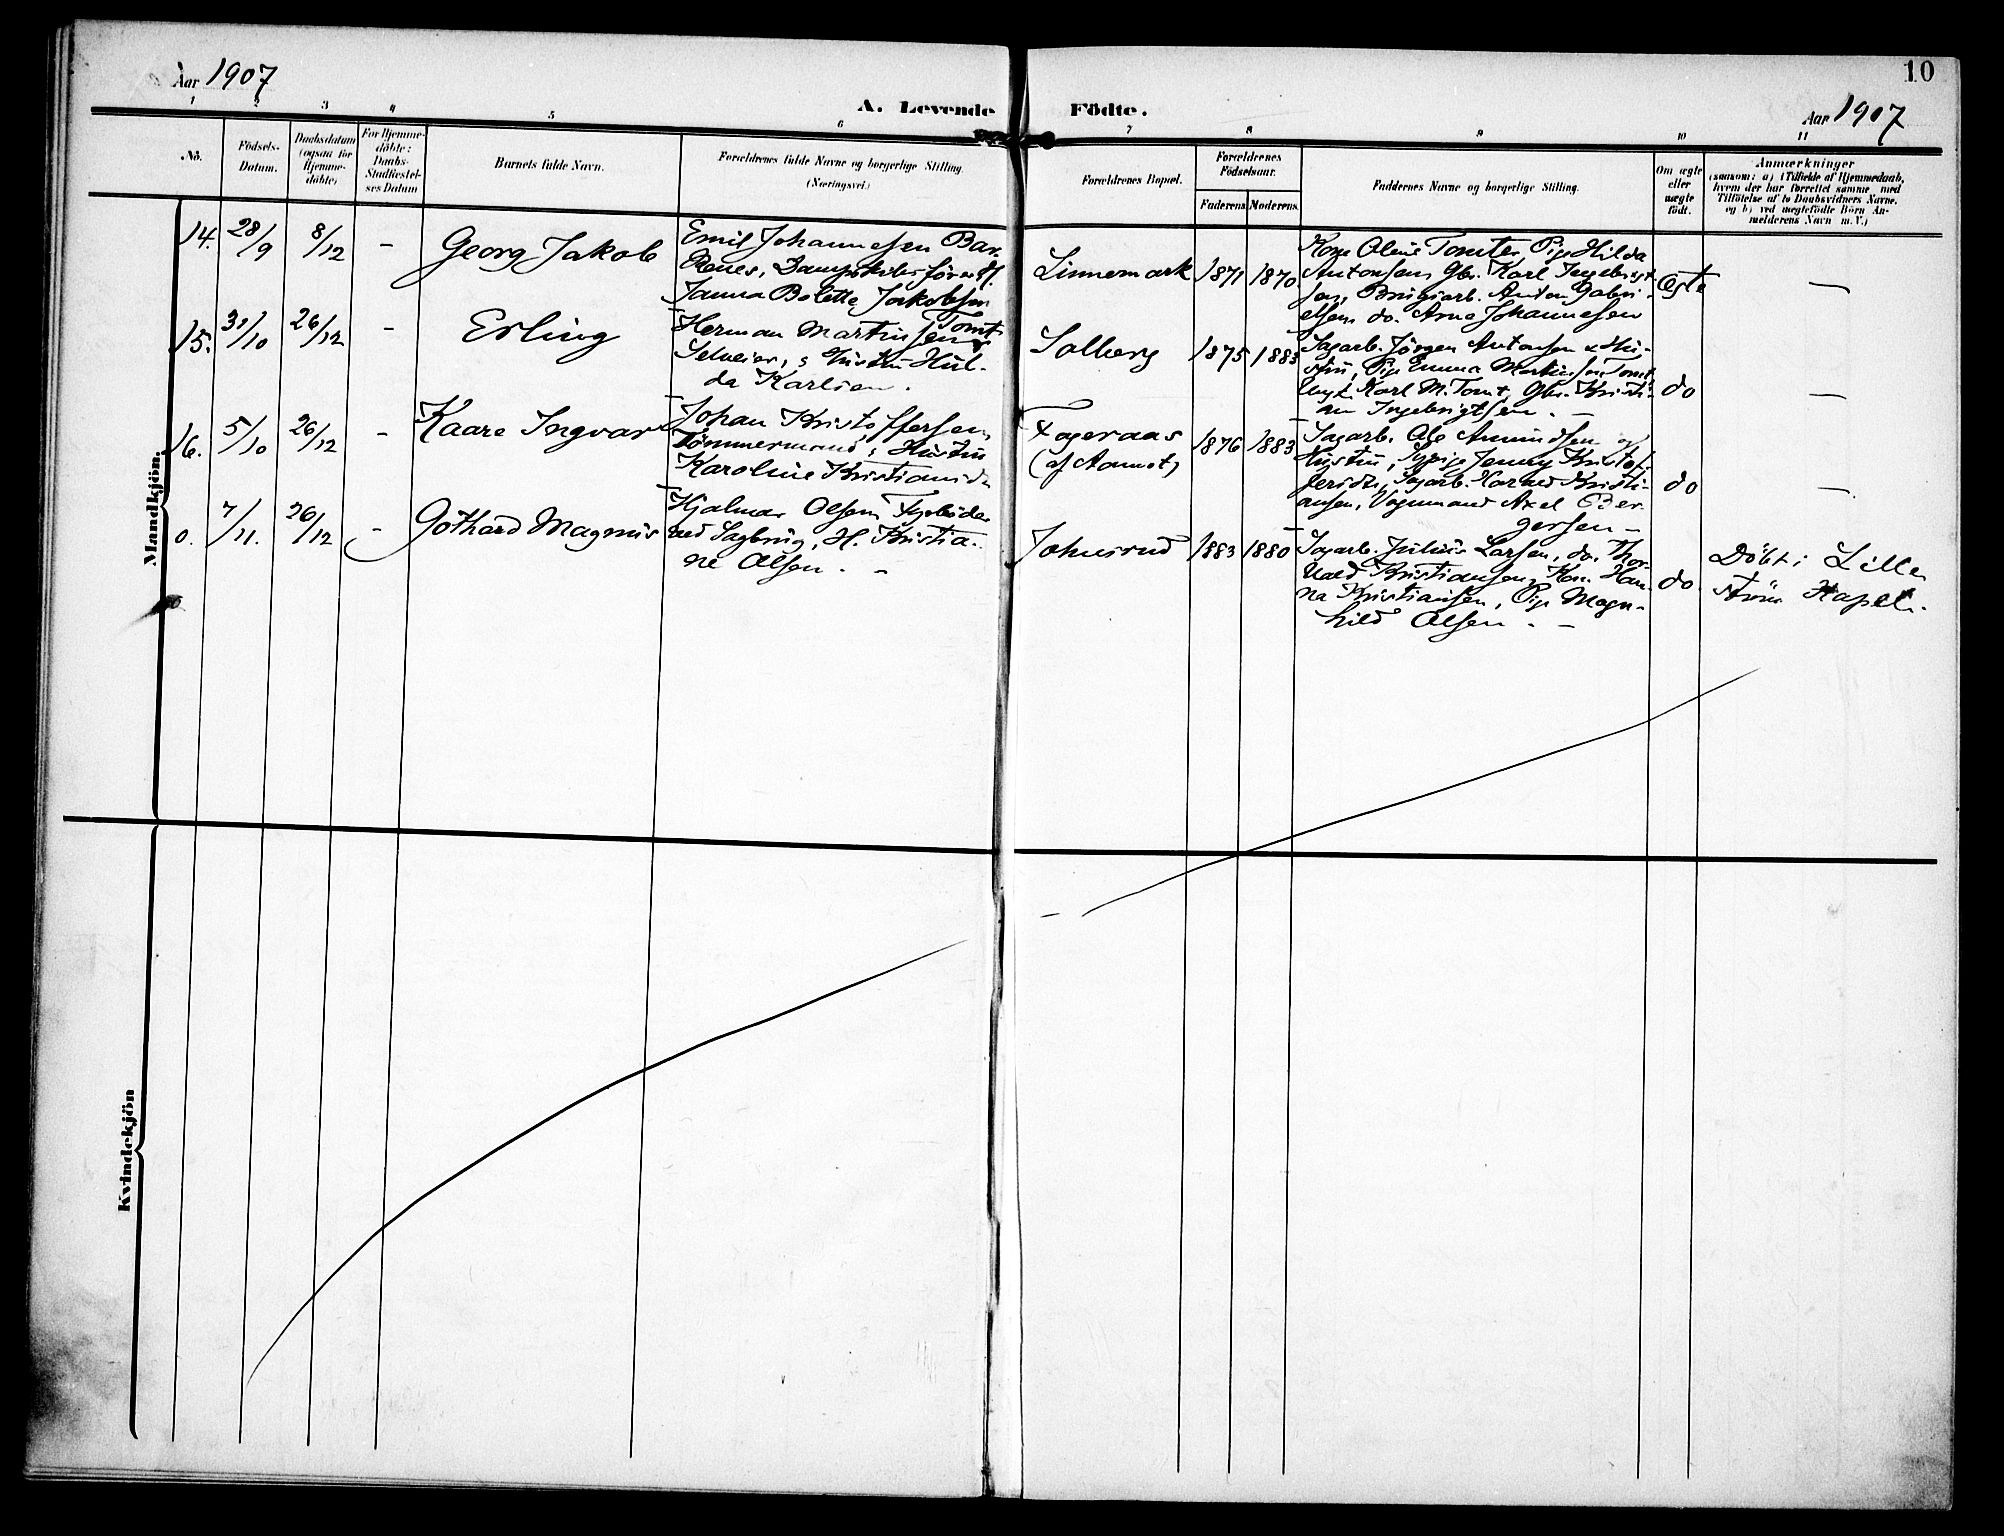 Aar 1907
10
A. Levende Födte.
Aar 1907
1 2 3 4 5 6 7 8 9 10 11
No.
Födsels-
Datum.
Daabsdatum
(ogsaa for
Hjemme-
döbte)
For Hjemme-
döbte:
Daabs-
Stadfæstel-
ses Datum
Barnets fulde Navn.
Forældrenes fulde Navne og borgerlige Stilling.
(Næringsvei.)
Forældrenes Bopæl.
Forældrenes
Födselsaar.
Faderens Moderens.
Faddernes Navne og borgerlige Stilling.
Om ægte
eller
uægte
födt.
Anmærkninger
(saasom: a) i Tilfælde af Hjemmedaab,
hvem der har forrettet samme, med
Tilföielse af to Daabsvidners Navne.
og b) ved uægtefödte Börn An-
melderens Navn m. V.)
Mandkjön.
14. 28/9 8/12 – Georg Jakob
Emil Johannesen
Janna Bolette Jakobsen
Linnemark 1871 1870
Kone Oline Tomter, Pige Hilda
Antonsen, Gbr. Karl Ingebrigt-
sen, Brugsarb. Anton Gabri-
elsen do. Arne Johannesen
Ægte —
15. 31/10 26/12 – Erling
Herman Martinsen Tomt
Selveier, Hustru Hul-
da Karlsen.
Solberg 1875 1883
Sagarb. Jörgen Antonsen & Hu-
stru, Pige Emma Martinsen Tomt
Ungk. Karl M. Tomt, Gbr. Kristi-
an Ingebrigtsen. –
do —
16. 5/10 26/12 – Kaare Ingvar
Johan Kristoffersen,
Tömmermand, Hustru
Karoline Kristiansdr
Fageraas
(af Aamot)
1876 1883
Sagarb. Ole Amundsen og
Hustru, Jenny Kristof-
fersdr, Sagarb. Konrad Kristi-
ansen, Vognmand Axel Bir-
gersen –
do —
0. 7/11. 26/12 – Gothard Magnus
Hjalmar Olsen, Fyrböder
ved Sagbrug, H. Kristia-
ne Olsen. –
Johnsrud 1883 1880
Sagarb. Julius Larsen, do. Thor-
vald Kristiansen, Kone Han-
na Kristiansen, Pige Magn-
hild Olsen. –
do.
Döbt i Lille
ström Kapel.
Kvindekjön